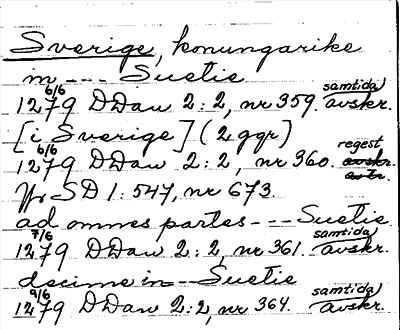 Sverige, konungarike
in --- Suetie
6/6 samtida
1279 DDan 2:2, nr 359. avskr.
[i Sverige] (2 ggr)
6/6 regest
1279 DDan 2:2, nr 360. avskr.
avtr.
fr SD 1:547, nr 673.
ad omnes partes --- Suetie.
7/6 samtida
1279 DDan 2:2, nr 361. avskr.
decime in --- Suetie
9/6 samtida
1279 DDan 2:2, nr 364. avskr.